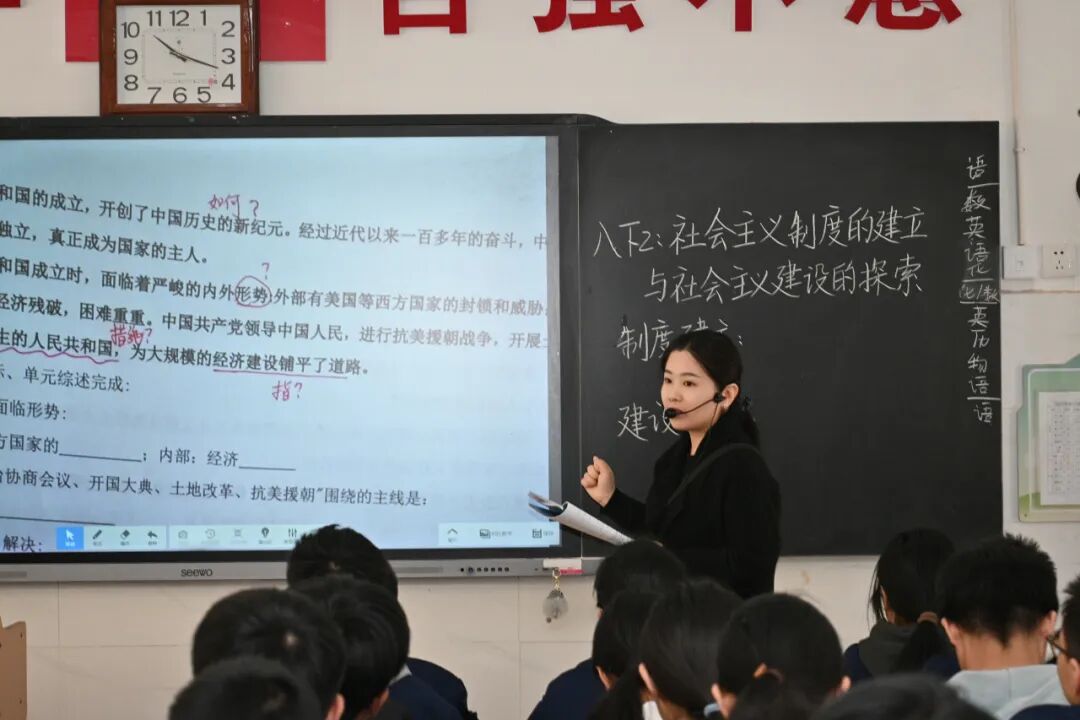 自强不息
11 12 1
10 2
9 3
8 4
7 6 5
如何？
和国的成立，开创了中国历史的新纪元。经过近代以来一百多年的奋斗，中
独立，真正成为国家的主人。
？
和国成立时，面临着严峻的内外形势，外部有美国等西方国家的封锁和威胁
经济残破，困难重重。中国共产党领导中国人民，进行抗美援朝战争，开展
措施？
生的人民共和国，为大规模的经济建设铺平了道路。
指？
示、单元综述完成：
面临形势：
方国家的______；内部：经济______
治协商会议、开国大典、土地改革、抗美援朝"围绕的主线是：
解决：
seewo
八下2：社会主义制度的建立
与社会主义建设的探索
制度建立：
建设
语
数
英
语
化
七/数
英
历
物
语
语